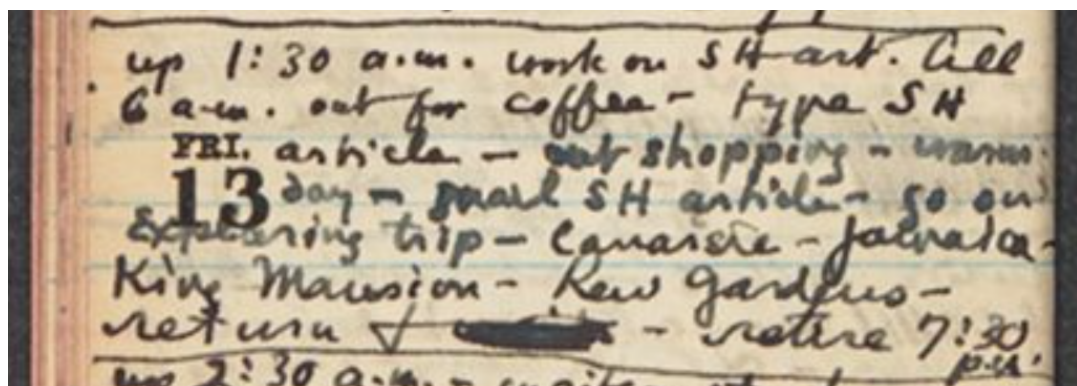 up 1:30 a.m. work on SH art. till
6 a.m. out for coffee - type SH
FRI. article - out shopping - warm
13 day - mail SH article - go on
exploring trip - Canarsie - Jamaica -
King Mansion - Kew Gardens -
return - retire 7:30
p.m.
up 2:30 a.m. -